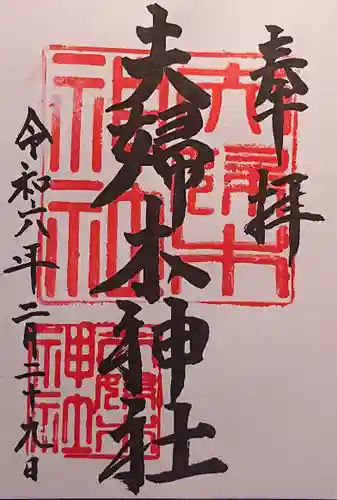 奉拝
夫婦木神社
令和六年二月二十九日